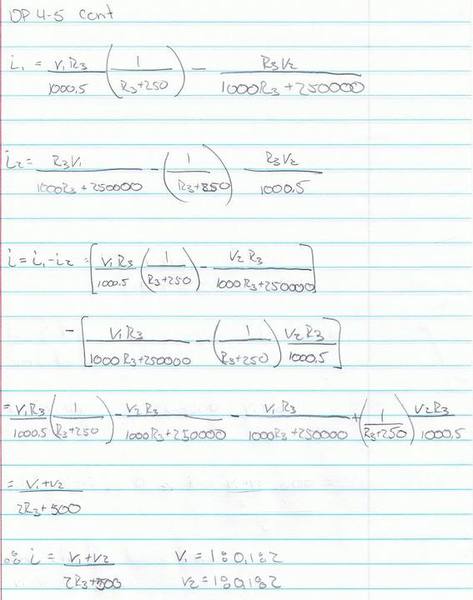 DP 4-5 cont
i₁ = V₁R₃/1000.5 (1/(R₃+250)) - R₃V₂/(1000R₃+250000)
i₂ = R₃V₁/(1000R₃+250000) - (1/(R₃+250)) R₃V₂/1000.5
i = i₁-i₂ = [V₁R₃/1000.5 (1/(R₃+250)) - V₂R₃/(1000R₃+250000)]
- [V₁R₃/(1000R₃+250000) - (1/(R₃+250)) V₂R₃/1000.5]
= V₁R₃/1000.5 (1/(R₃+250)) - V₂R₃/(1000R₃+250000) - V₁R₃/(1000R₃+250000) + (1/(R₃+250)) V₂R₃/1000.5
= (V₁+V₂)/(2R₃+500)
∴ i = (V₁+V₂)/(2R₃+500) V₁ = 1:0.1:2
V₂ = 1:0.1:2